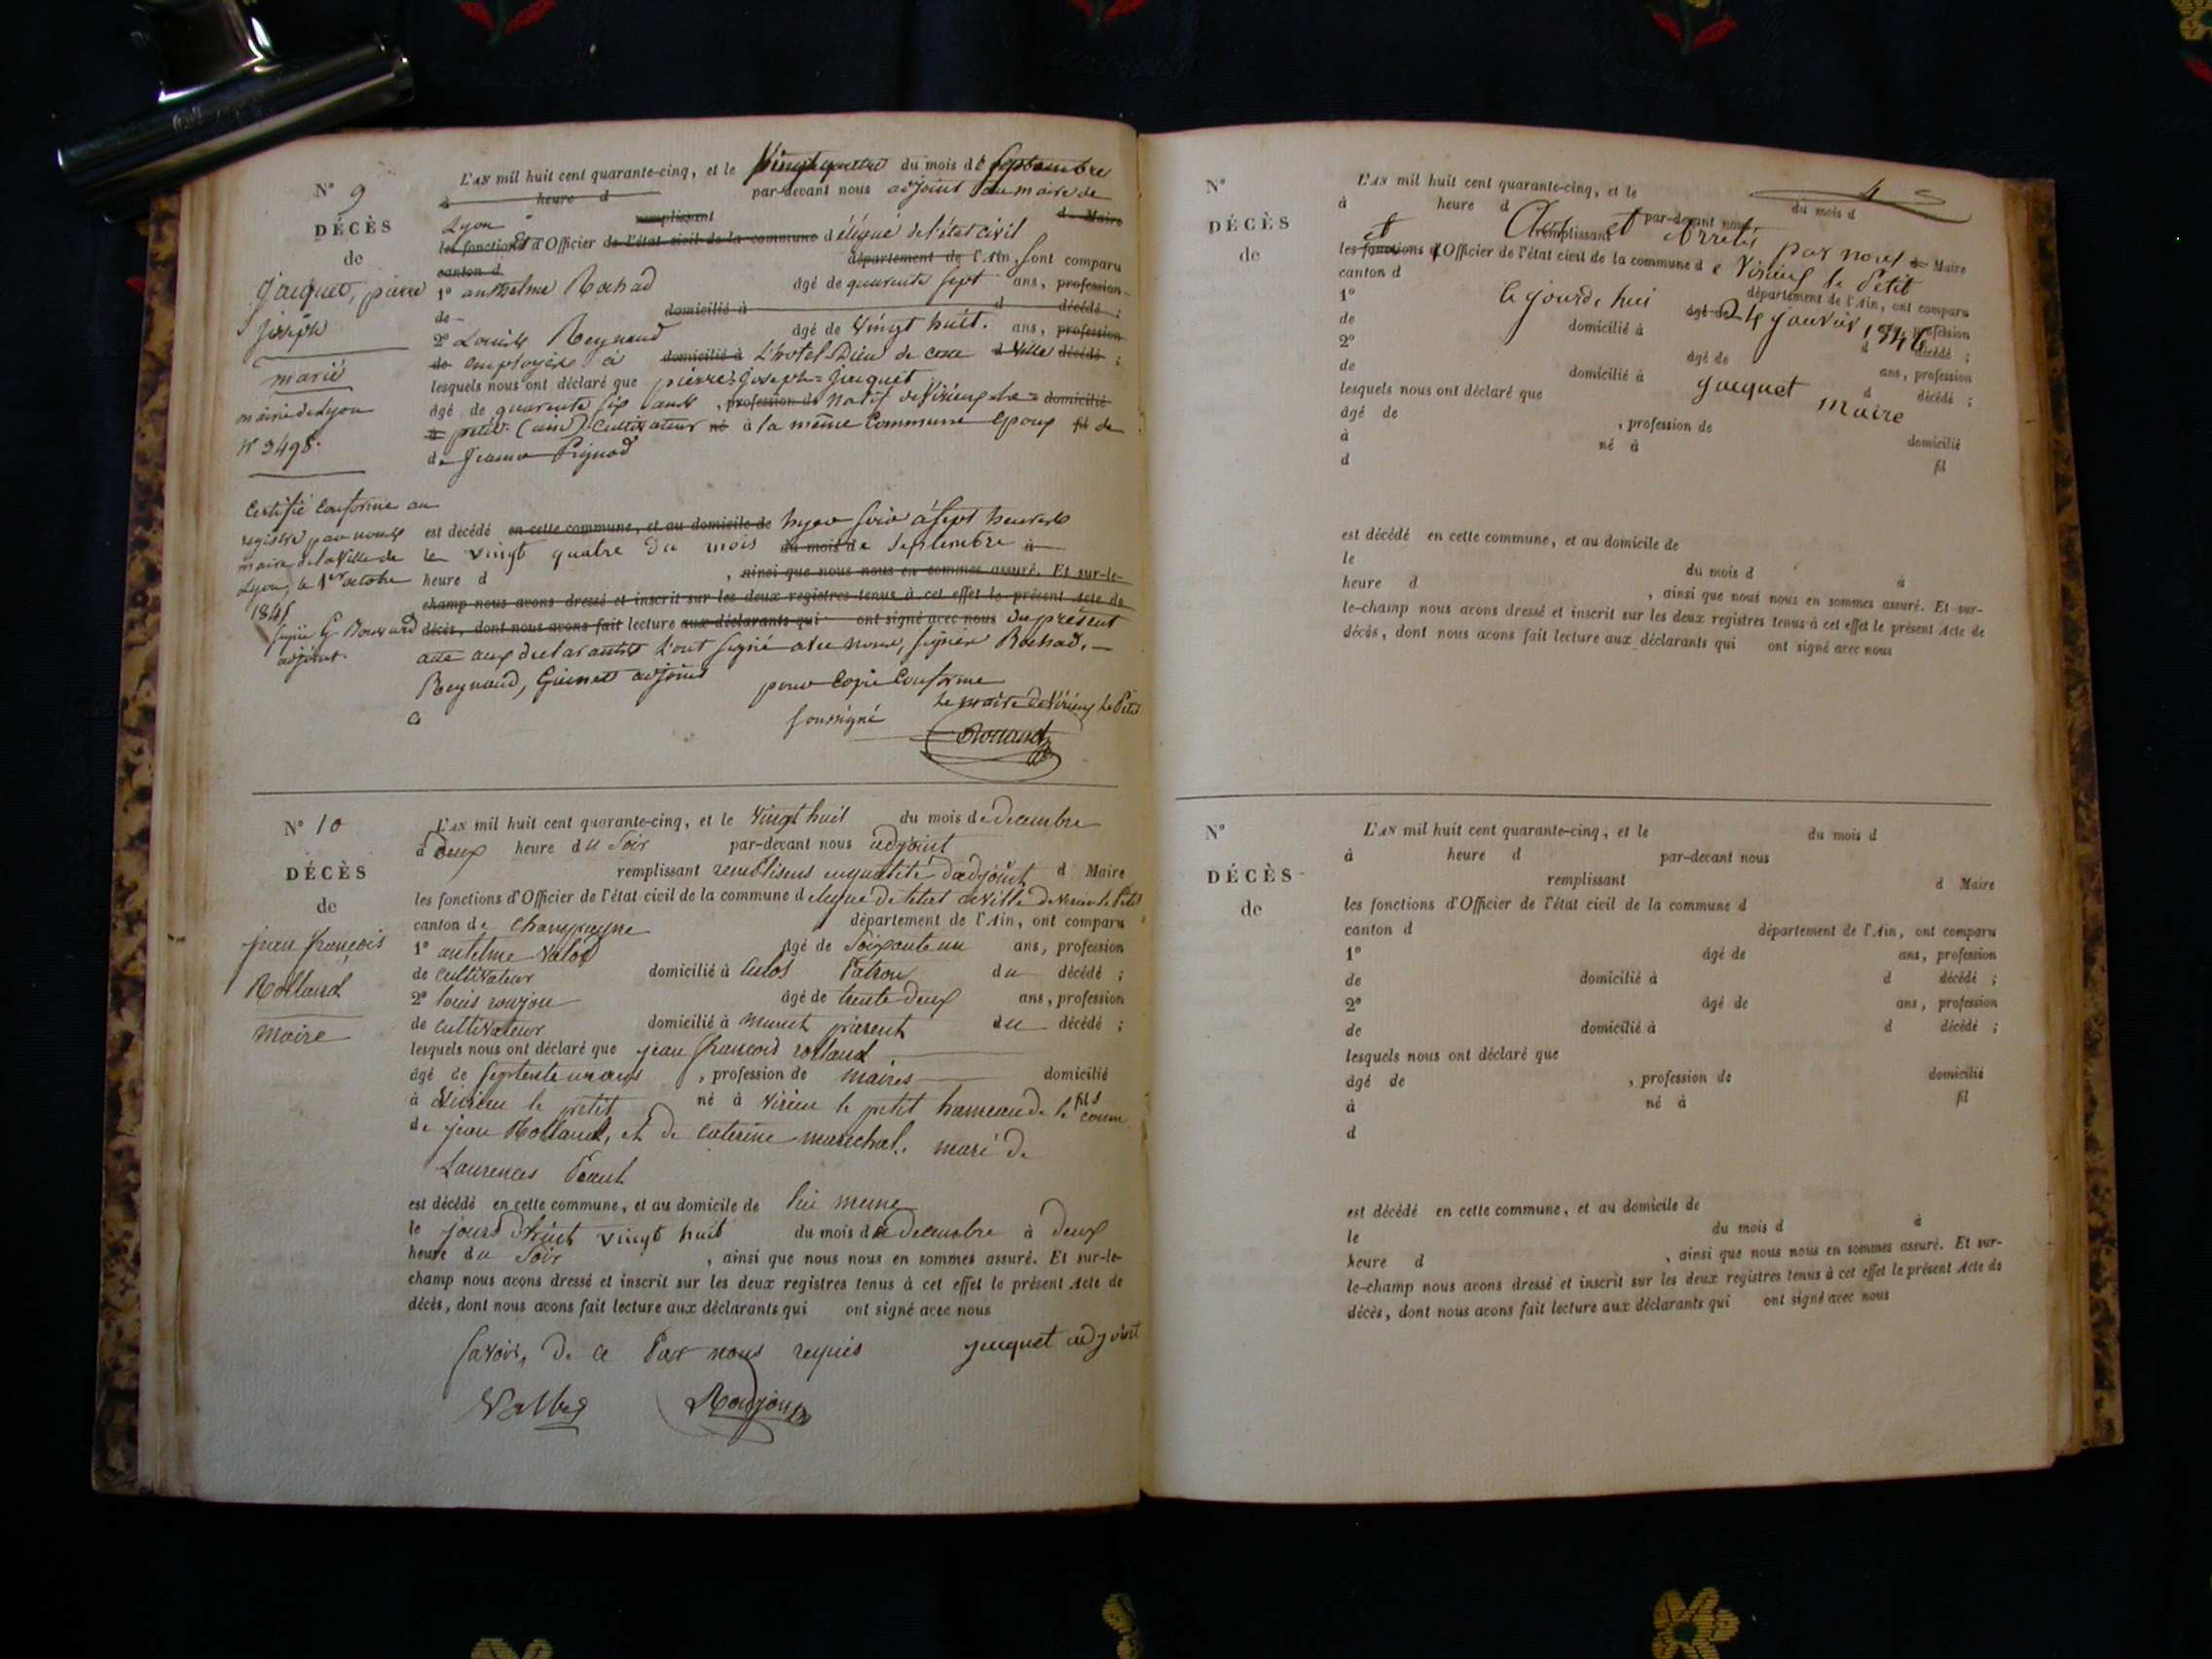 N° 9
DÉCÈS
de
Jacquet, pierre
joseph
marié
mairie de Lyon
N° 3498.
Certifié Conforme au
registre par nous
maire de la Ville de
Lyon, le 1er octobre
1845
adjoint.
L'AN mil huit cent quarante-cinq, et le Vingt quatre du mois de Septembre
à heure d par-devant nous adjoint au maire de
Lyon remplissant d Maire
les fonctions d'Officier de l'état civil de la commune délégué de l'état civil
canton d département de l'Ain, sont comparu
1° anthelme Rochad âgé de quarante sept ans, profession
de domicilié à d décédé ;
2° Louise Reynaud âgé de Vingt huit. ans, profession
de employée à domicilié à L'hotel Dieu de cette d Ville décédé ;
lesquels nous ont déclaré que pierre=Joseph=Jacquet
âgé de quarante six ans, profession de natif de Virieux le= domicilié
à petit (ain) Cultivateur né à la même Commune Epoux fil de
de Jeanne Pignod
est décédé en cette commune, et au domicile de hyer soir à sept heures
le vingt quatre du mois du mois de Septembre à
heure d , ainsi que nous nous en sommes assuré. Et sur-le-
champ nous avons dressé et inscrit sur les deux registres tenus à cet effet le présent Acte de
décès, dont nous avons fait lecture aux déclarants qui ont signé avec nous du présent
acte aux declarants L'ont signé avec nous, signer Rochad.
Reynaud, Guinet adjoint pour Copie Conforme
Le maire de Virieux Le Petit
soussigné
Rolland
N° 10
DÉCÈS
de
jean françois
Rolland
Maire
L'AN mil huit cent quarante-cinq, et le Vingt huit du mois de decembre
à deux heure du Soir par-devant nous adjoint
remplissant en qualité d'adjoint d Maire
les fonctions d'Officier de l'état civil de la commune d
canton de Champagne département de l'Ain, ont comparu
1° antelme Valod âgé de Soixante un ans, profession
de Cultivateur domicilié à Culos Patron du décédé ;
2° louis roujou âgé de trente deux ans, profession
de Cultivateur domicilié à munet parent du décédé ;
lesquels nous ont déclaré que jean francois rolland
âgé de Septente un ans , profession de Maires domicilié
à Virieu le petit né à Virieu le petit hameau de le comm fils
de jean Rolland, et de Caterine marechal. marié de
Laurences
est décédé en cette commune, et au domicile de lui meme
le jours d'huit vingt huit du mois de decembre à deux
heure du Soir , ainsi que nous nous en sommes assuré. Et sur-le-
champ nous avons dressé et inscrit sur les deux registres tenus à cet effet le présent Acte de
décès, dont nous avons fait lecture aux déclarants qui ont signé avec nous
Savoir, De ce Par nous requis Jacquet adjoint
Roudjou
N°
DÉCÈS
de
L'AN mil huit cent quarante-cinq, et le du mois d
à heure d par-devant nous
Clos et Arretés par nous
remplissant d Maire
les fonctions d'Officier de l'état civil de la commune de Virieux le Petit
canton d département de l'Ain, ont comparu
le jourd'hui 24 janvier 1846
1° âgé de ans, profession
de domicilié à d décédé ;
2° âgé de ans, profession
de domicilié à d décédé ;
Jacquet
Maire
lesquels nous ont déclaré que
âgé de , profession de domicilié
à né à fil
d
est décédé en cette commune, et au domicile de
le du mois d à
heure d , ainsi que nous nous en sommes assuré. Et sur-
le-champ nous avons dressé et inscrit sur les deux registres tenus à cet effet le présent Acte de
décès, dont nous avons fait lecture aux déclarants qui ont signé avec nous
N°
DÉCÈS
de
L'AN mil huit cent quarante-cinq, et le du mois d
à heure d par-devant nous
remplissant d Maire
les fonctions d'Officier de l'état civil de la commune d
canton d département de l'Ain, ont comparu
1° âgé de ans, profession
de domicilié à d décédé ;
2° âgé de ans, profession
de domicilié à d décédé ;
lesquels nous ont déclaré que
âgé de , profession de domicilié
à né à fil
d
est décédé en cette commune, et au domicile de
le du mois d à
heure d , ainsi que nous nous en sommes assuré. Et sur-
le-champ nous avons dressé et inscrit sur les deux registres tenus à cet effet le présent Acte de
décès, dont nous avons fait lecture aux déclarants qui ont signé avec nous